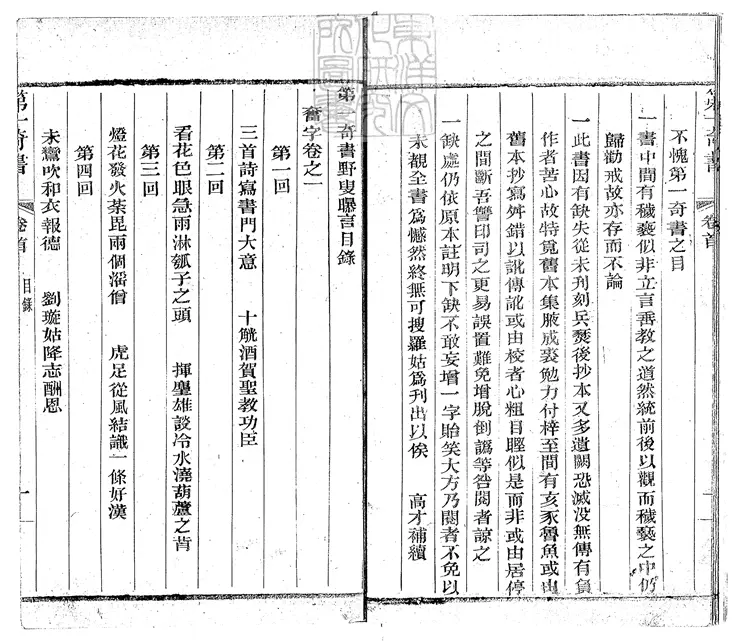 不愧第一奇書之目
一書中間有穢褻似非立言垂教之道然統前後以觀而穢褻之中仍
歸勸戒故亦存而不論
一此書因有缺失從未刊刻兵燹後抄本又多遺闕恐滅没無傳有負
作者苦心故特覓舊本集腋成裘勉力付梓至間有亥豕魯魚或由
舊本抄寫舛錯以訛傳訛或由校者心粗目瞪似是而非或由居停
之間斷吾讐印司之更易誤置難免增脫倒譌等咎閱者諒之
一缺處仍依原本註明下缺不敢妄增一字貽笑大方乃閱者不免以
未覩全書為憾然終無可搜羅姑為刊出以俟　高才補續
第一奇書　卷首
第一奇書野叟曝言目錄
奮字卷之一
第一回
三首詩寫書門大意　十觥酒賀聖教功臣
第二回
看花色眼急雨淋瓠子之頭　揮麈雄談冷水澆葫蘆之背
第三回
燈花發火荼毘兩個淫僧　虎足從風結識一條好漢
第四回
未鸞吹和衣報德　劉璇姑降志酬恩
第一奇書　卷首　目錄　一